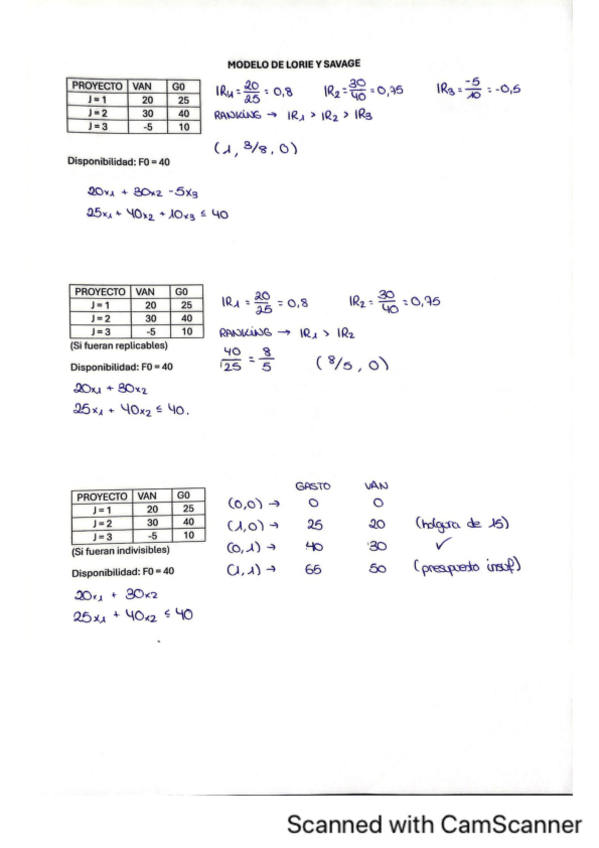 MODELO DE LORIE Y SAVAGE
PROYECTO VAN G0
J = 1 20 25
J = 2 30 40
J = 3 -5 10
IR1 = 20/25 = 0,8 IR2 = 30/40 = 0,75 IR3 = -5/10 = -0,5
RANKING → IR1 > IR2 > IR3
(1, 3/8, 0)
Disponibilidad: F0 = 40
20x1 + 30x2 - 5x3
25x1 + 40x2 + 10x3 ≤ 40
PROYECTO VAN G0
J = 1 20 25
J = 2 30 40
J = 3 -5 10
(Si fueran replicables)
IR1 = 20/25 = 0,8 IR2 = 30/40 = 0,75
RANKING → IR1 > IR2
40/25 = 8/5 (8/5, 0)
Disponibilidad: F0 = 40
20x1 + 30x2
25x1 + 40x2 ≤ 40.
PROYECTO VAN G0
J = 1 20 25
J = 2 30 40
J = 3 -5 10
(Si fueran indivisibles)
GASTO VAN
(0,0) → 0 0
(1,0) → 25 20 (holgura de 15)
(0,1) → 40 30 ✓
(1,1) → 65 50 (presupuesto insuf)
Disponibilidad: F0 = 40
20x1 + 30x2
25x1 + 40x2 ≤ 40
Scanned with CamScanner